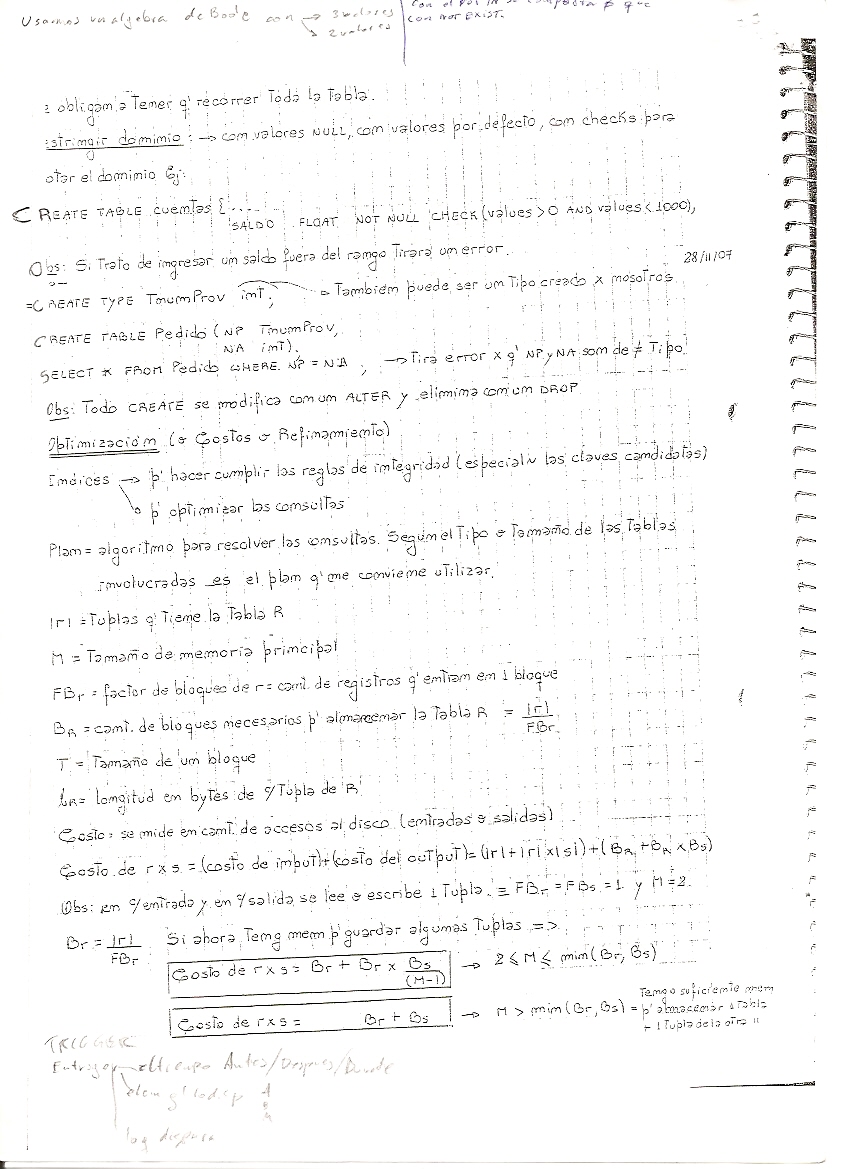 Usamos un algebra de Boole con → 3 valores
→ 2 valores
con NOT EXIST.
obligam a Temer q' recorrer Toda la Tabla.
stringir dominio: → com valores NULL, com valores por defecto, com checks para
otar el dominio Ej:
CREATE TABLE cuentas {....
SALDO FLOAT NOT NULL CHECK (values > 0 AND values < 1000),
Obs: Si Trato de ingresar um saldo fuera del rango Tirara um error.
28/11/07
= CREATE TYPE TnumProv int; → Tambiém puede ser um Tipo creado x nosotros
CREATE TABLE Pedido (NP TnumProv,
NA int).
SELECT * FROM Pedido WHERE NP = NA ; → Tira error x q' NP y NA som de ≠ Tipo
Obs: Todo CREATE se modifica com um ALTER y elimima com um DROP
Optimización (o Costos o Refinamiento)
Indices → p' hacer cumplir las reglas de integridad (especial~ las claves candidatas)
→ p' optimizar las consultas
Plan = algoritmo para resolver las consultas. Segúm el Tipo o Tamaño de las Tablas
involucradas es el plan q' me conviene utilizar.
|r| = Tuplas q' Tiene la Tabla R
M = Tamaño de memoria principal
FBr = factor de bloqueo de r = cant. de registros q' entran em 1 bloque
BR = cant. de bloques necesarios p' almacenar la Tabla R = |r| / FBr
T = Tamaño de um bloque
LR = longitud en bytes de c/Tupla de R
Costo = se mide en cant. de accesos al disco (entradas o salidas)
Costo de r x s = (costo de imput) + (costo del output) = (|r| + |r| x |s|) + (BR + BR x Bs)
Obs: em c/entrada y em c/salida se lee o escribe 1 Tupla. ≡ FBr = FBs = 1 y M = 2.
Br = |r| / FBr Si ahora Teng mem p' guardar algumas Tuplas =>
Costo de r x s = Br + Br x Bs / (M-1) → 2 ≤ M ≤ min(Br, Bs)
Costo de r x s = Br + Bs → M > min(Br, Bs) = Tengo suficiente mem
p' almacenar 1 Tabla
+ 1 Tupla de la otra
TRIGGER
Antes/Despues/Donde